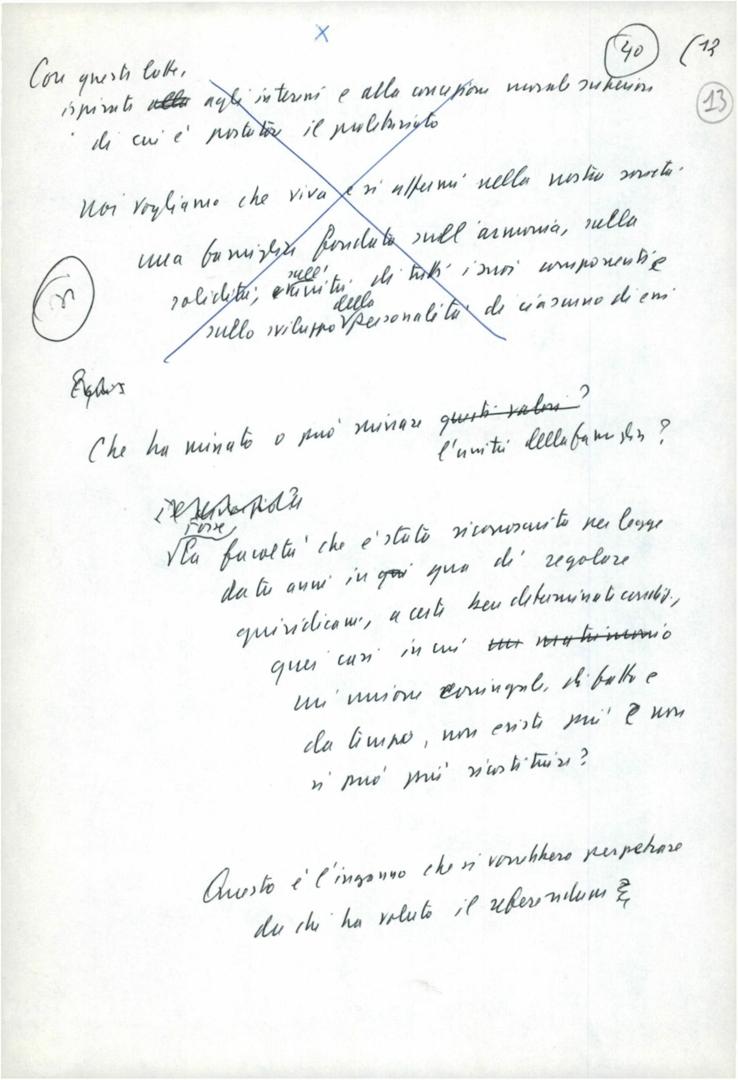 X
40 (12
13
Con questa lotta,
ispirata alla agli interessi e alla concezione morale superiore
di cui è portatore il proletariato
noi vogliamo che viva e si affermi nella nostra società
una famiglia fondata sull'armonia, sulla
solidità, sull' unità di tutti i suoi componenti e
sullo sviluppo della personalità di ciascuno di essi
Che ha minato o può minare questi valori?
l'unità della famiglia?
Forse
La facoltà che è stata riconosciuta per legge
da tre anni in qui qua di regolare
giuridicam., a certe ben determinate condiz.,
quei casi in cui un matrimonio
un'unione coniugale, di fatto e
da tempo, non esiste più e non
si può più ricostituire?
Questo è l'inganno che si vorrebbe perpetrare
da chi ha voluto il referendum